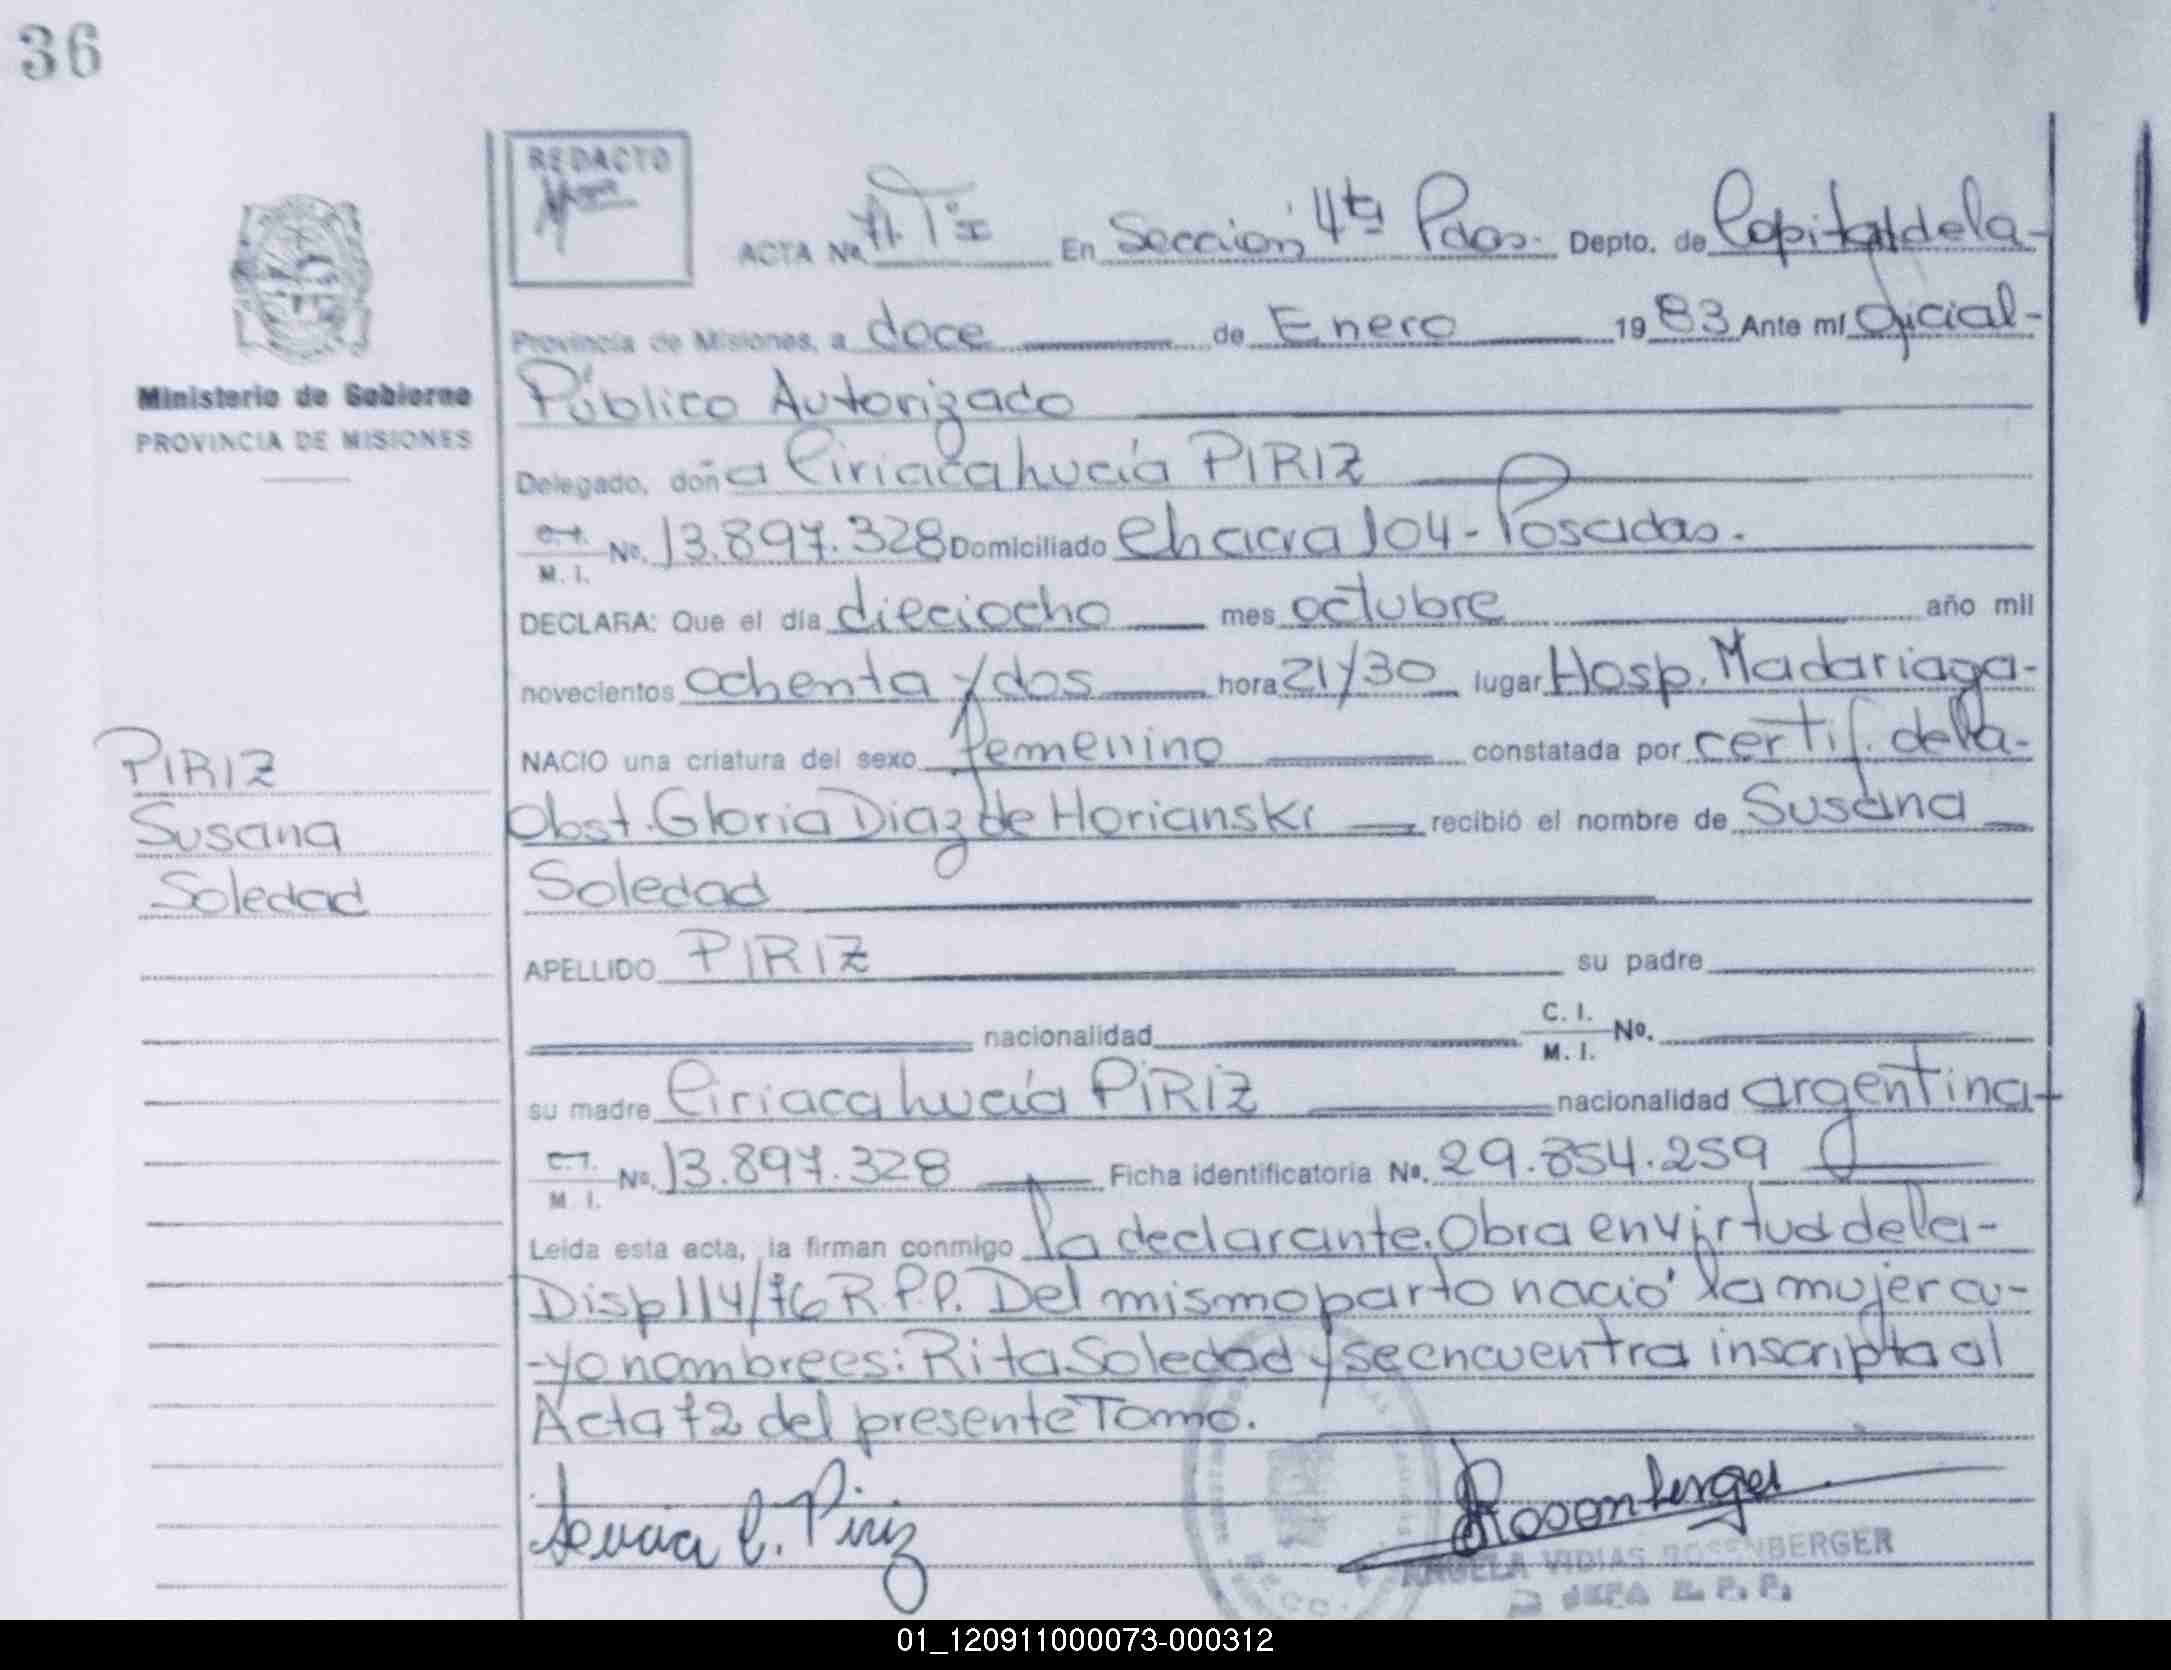 36
REDACTO
ACTA Nº 71. Tº I En Sección 4ta Pdas. Depto. de Capital de la-
Provincia de Misiones, a doce de Enero 1983 Ante mí Oficial-
Ministerio de Gobierno
PROVINCIA DE MISIONES
Público Autorizado
Delegado, doña Ciriaca Lucía PIRIZ
C.I.
M. I.
No. 13.897.328 Domiciliado Chacra 104 - Posadas.
DECLARA: Que el día dieciocho mes octubre año mil
novecientos ochenta y dos hora 21y30 lugar Hosp. Madariaga-
NACIO una criatura del sexo femenino constatada por certif. de la-
Obst. Gloria Diaz de Horianski recibió el nombre de Susana
Soledad
PIRIZ
Susana
Soledad
APELLIDO PIRIZ su padre
nacionalidad C. I.
M. I.
Nº.
su madre Ciriaca Lucía PIRIZ nacionalidad argentina
C.I.
M. I.
Nº. 13.897.328 Ficha identificatoria Nº. 29.854.259
Leida esta acta, la firman conmigo la declarante. Obra en virtud de la-
Disp 114/76 R.P.P. Del mismo parto nació la mujer cu-
-yo nombre es: Rita Soledad y se encuentra inscripta al
Acta 72 del presente Tomo.
Lucia C. Piriz
Rosenberger
ANGELA VIDIAS ROSENBERGER
JEFA R. P. P.
01_120911000073-000312